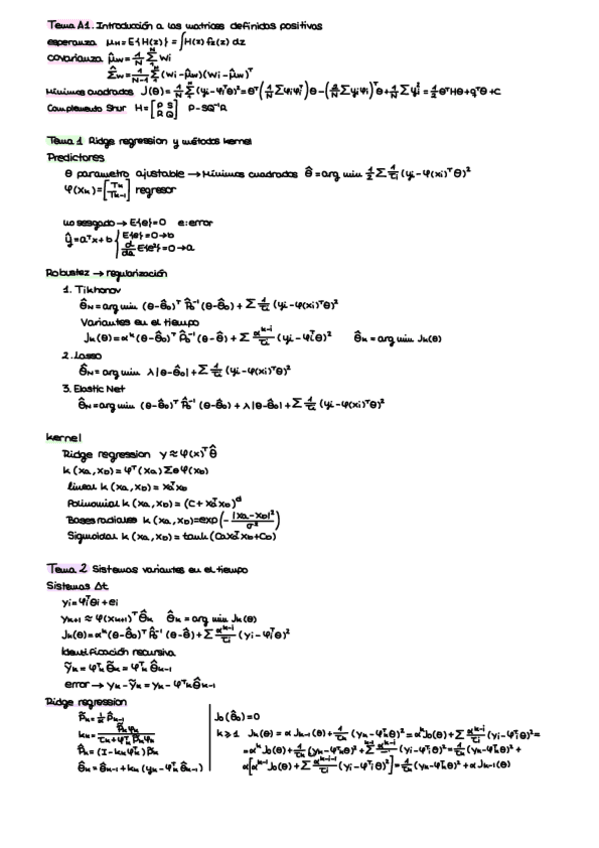 Tema A1. Introducción a las matrices definidas positivas
esperanza μ_H = E{H(z)} = ∫H(z) f_z(z) dz
covarianza μ̂_w = 1/N Σ wi
Σ̂_w = 1/(N-1) Σ (wi - μ̂_w)(wi - μ̂_w)ᵀ
Mínimos cuadrados J(θ) = 1/N Σ (yi - φiᵀθ)² = θᵀ(1/N Σ φiφiᵀ)θ - (2/N Σ yiφi)ᵀθ + 1/N Σ yi² = 1/2 θᵀHθ + qᵀθ + C
Complemento Shur H = [P S; R Q] P - SQ⁻¹R
Tema 1 Ridge regression y métodos kernel
Predictores
θ parametro ajustable → Mínimos cuadrados θ̂ = arg min 1/2 Σ 1/τi (yi - φ(xi)ᵀθ)²
φ(xk) = [Tk; Tk-1] regresor
no sesgado → E{e} = 0 e: error
ŷ = aᵀx + b { E{e} = 0 → b
d/da E{e²} = 0 → a
Robustez → regularización
1. Tikhonov
θ̂_N = arg min (θ - θ̂₀)ᵀ P̂₀⁻¹ (θ - θ̂₀) + Σ 1/τi (yi - φ(xi)ᵀθ)²
Variantes en el tiempo
Jk(θ) = αᵏ(θ - θ̂₀)ᵀ P̂₀⁻¹ (θ - θ̂) + Σ αᵏ⁻ⁱ/τi (yi - φiᵀθ)² θ̂k = arg min Jk(θ)
2. Lasso
θ̂_N = arg min λ|θ - θ̂₀| + Σ 1/τi (yi - φ(xi)ᵀθ)²
3. Elastic Net
θ̂_N = arg min (θ - θ̂₀)ᵀ P̂₀⁻¹ (θ - θ̂₀) + λ|θ - θ̂₀| + Σ 1/τi (yi - φ(xi)ᵀθ)²
Kernel
Ridge regression y ≈ φ(x)ᵀθ̂
k(xa, xb) = φᵀ(xa) Σθ φ(xb)
lineal k(xa, xb) = xaᵀxb
Polinomial k(xa, xb) = (C + xaᵀxb)ᵈ
Bases radiales k(xa, xb) = exp(-|xa - xb|²/σ²)
Sigmoidal k(xa, xb) = tanh(Caxaᵀxb + Cb)
Tema 2 Sistemas variantes en el tiempo
Sistemas Δt
yi = φiᵀθi + ei
yk+1 ≈ φ(xk+1)ᵀθ̂k θ̂k = arg min Jk(θ)
Jk(θ) = αᵏ(θ - θ̂₀)ᵀ P̂₀⁻¹ (θ - θ̂) + Σ αᵏ⁻ⁱ/τi (yi - φiᵀθ)²
Identificación recursiva
ỹk = φkᵀθ̃k = φkᵀθ̂k-1
error → yk - ỹk = yk - φkᵀθ̂k-1
Ridge regression
P̃k = 1/α P̂k-1
kk = P̃kφk/(τk + φkᵀP̃kφk)
P̂k = (I - kkφkᵀ)P̃k
θ̂k = θ̂k-1 + kk(yk - φkᵀθ̂k-1)
J₀(θ̂₀) = 0
k ≥ 1 Jk(θ) = α Jk-1(θ) + 1/τk (yk - φkᵀθ)² = αᵏJ₀(θ) + Σ αᵏ⁻ⁱ/τi (yi - φᵀiθ)² =
= αᵏ J₀(θ) + 1/τk (yk - φkᵀθ)² + Σ αᵏ⁻ⁱ/τi (yi - φᵀiθ)² = 1/τk (yk - φkᵀθ)² +
α[αᵏ⁻¹J₀(θ) + Σ αᵏ⁻ⁱ⁻¹/τi (yi - φᵀiθ)²] = 1/τk (yk - φkᵀθ)² + α Jk-1(θ)